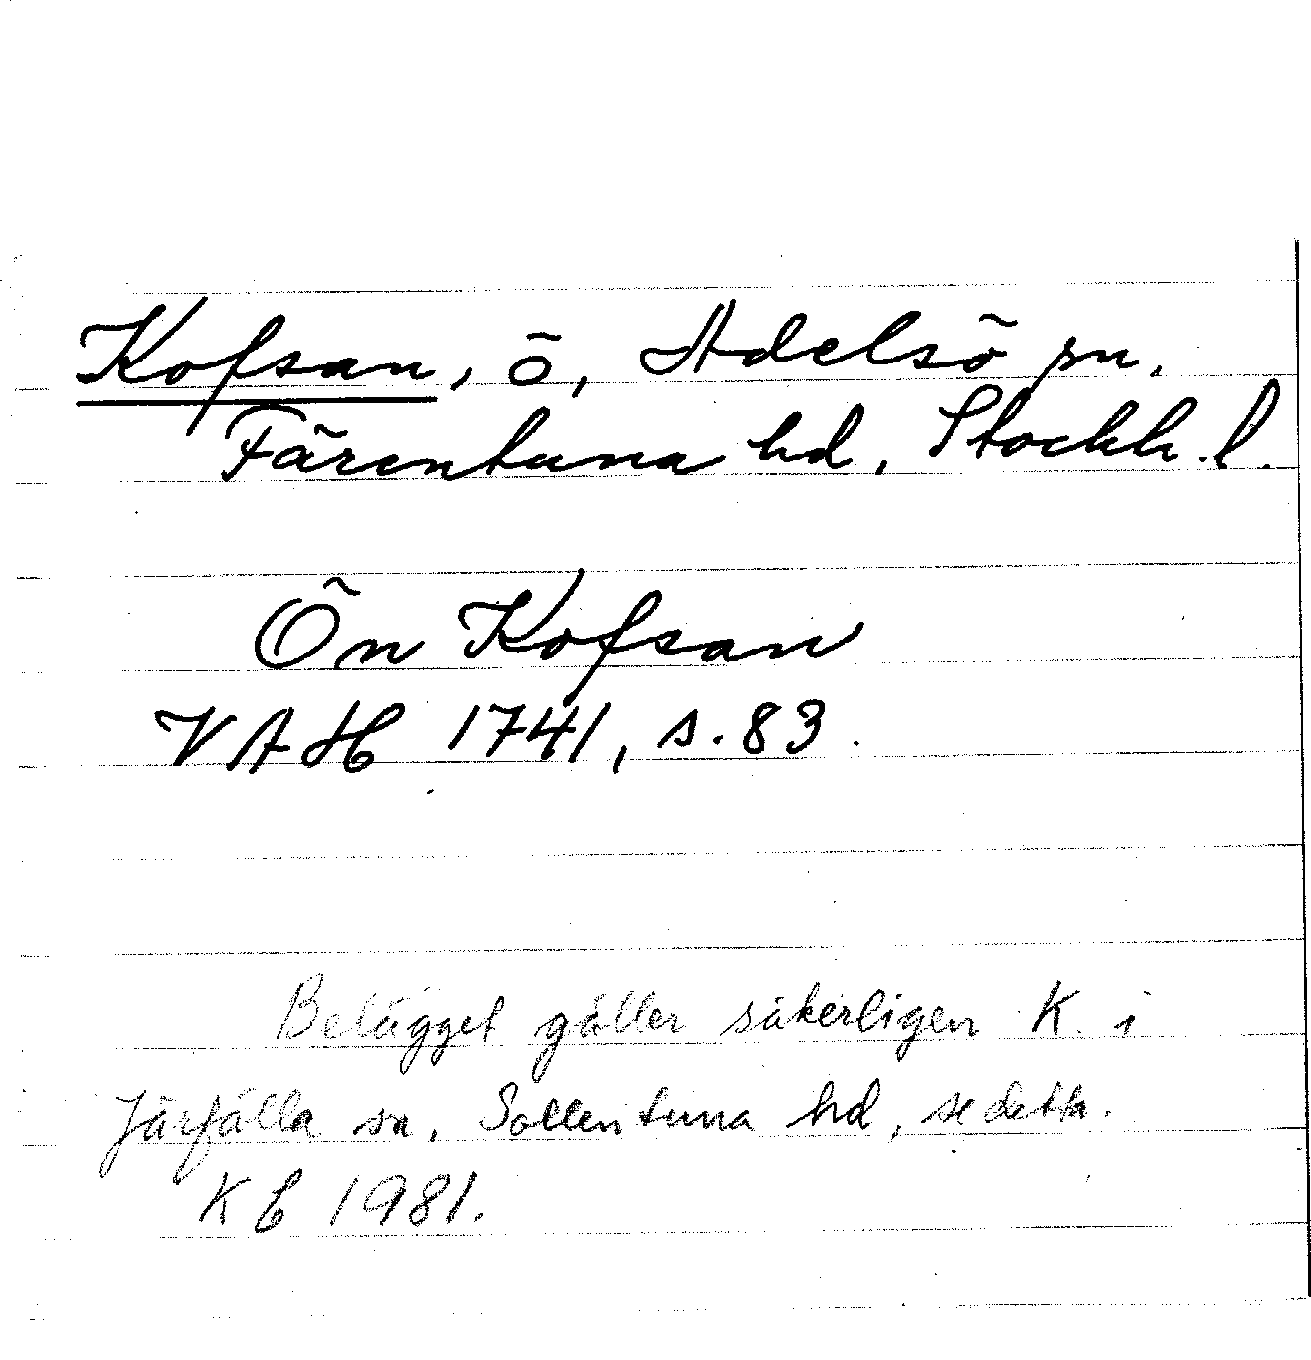 Kofsan, ö, Adelsö sn,
Färentuna hd, Stockh. l.
Ön Kofsan
VAH 1741, s. 83.
Belägget gäller säkerligen K. i
Järfälla sn, Sollentuna hd, se detta.
KC 1981.